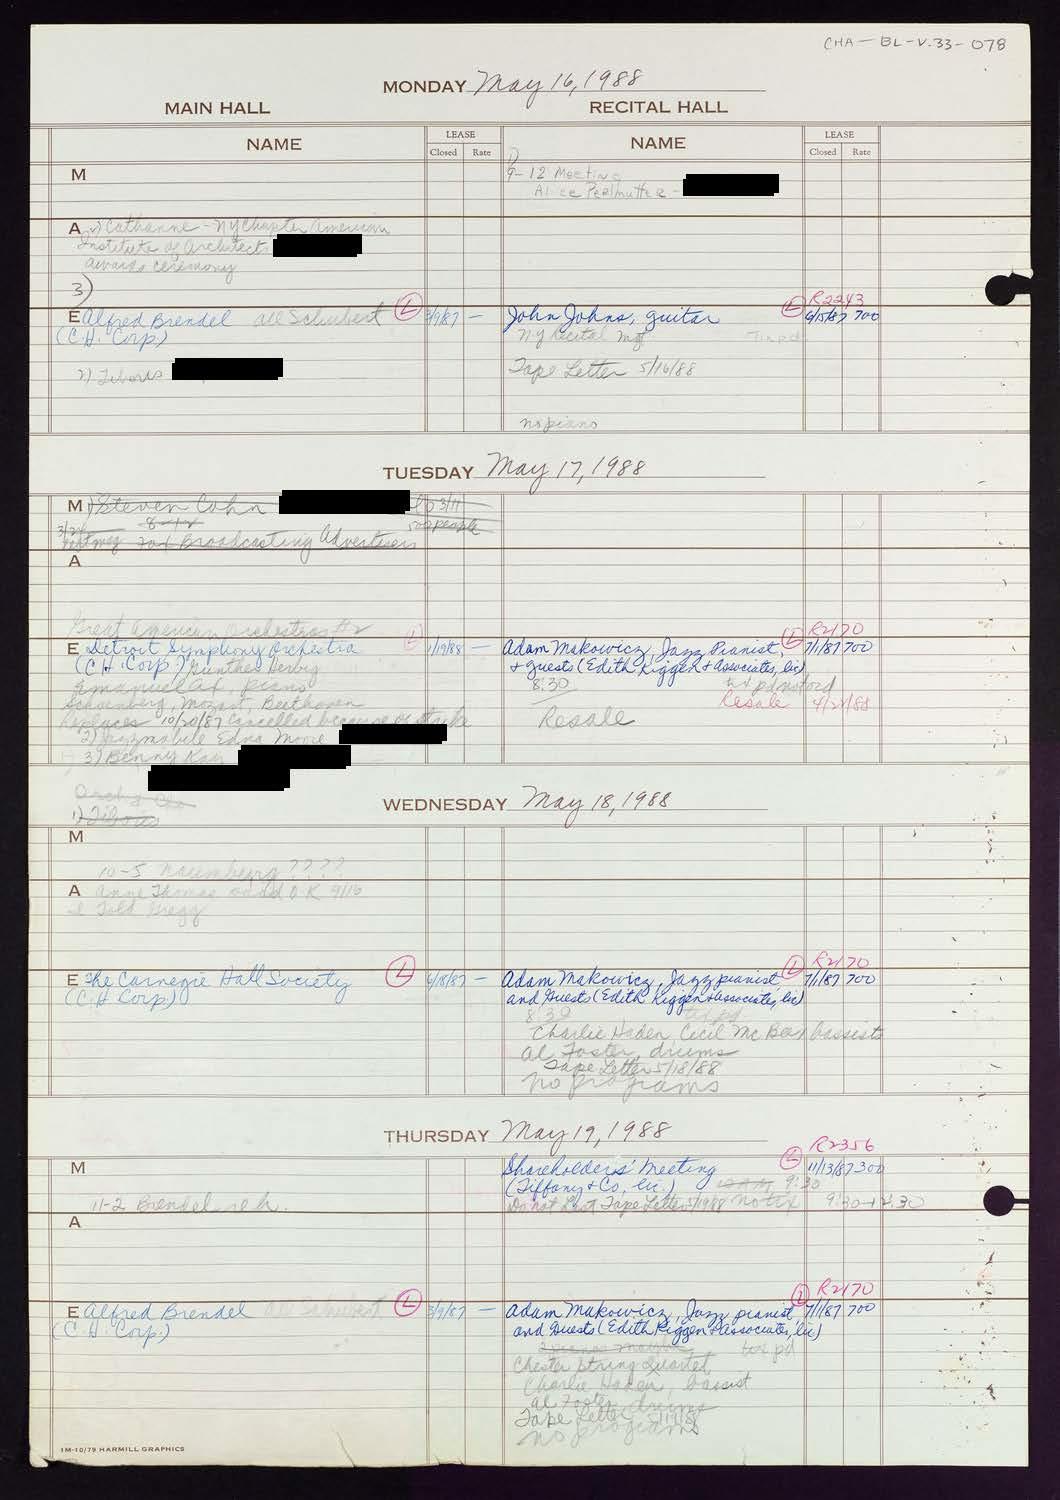 CHA-BL-V.33-078
MONDAY May 16, 1988
MAIN HALL RECITAL HALL
NAME LEASE NAME LEASE
Closed Rate Closed Rate
M 9-12 Meeting
Alice Perlmutter -
A Catharine - NY Chapter American
Institute of Architects
awards ceremony
3)
E Alfred Brendel all Schubert L 3/9/87 — John Johns, guitar L R2243 6/15/87 700
(C.H. Corp.) NY Recital Mgt
2) Tiboris Tape Letter 5/16/88
no piano
TUESDAY May 17, 1988
M 1) Steven Cohn 3/11
8-12 500 people
Broadcasting Advertisers
A
Great American Orchestras #2
E Detroit Symphony Orchestra L 1/19/88 — Adam Makowicz, Jazz Pianist, L R2170 7/1/87 700
(C.H. Corp.) Gunther Herbig + guests (Edith Kiggen + Associates, Inc)
Emanuel Ax, piano 8:30
Schoenberg, Mozart, Beethoven Resale 4/21/88
Replaces 10/20/87 cancelled because of strike Resale
2) Jazzmobile Edna Moore
3) Benny Kay
Orch & Cho
1) Tiboris
WEDNESDAY May 18, 1988
M
10-5 Naumburg ????
A Anne Thomas O.K. 9/16
I Told Gregg
E The Carnegie Hall Society L 6/18/87 — Adam Makowicz, Jazz pianist L R2170 7/1/87 700
(C.H. Corp.) and Guests (Edith Kiggen & Associates, Inc)
8:30 tix pd
Charlie Haden, Cecil Mc Bee, bassists
Al Foster, drums
Tape Letter 5/18/88
no programs
THURSDAY May 19, 1988
M Shareholders' Meeting L R2356 11/13/87 300
(Tiffany & Co, Inc.) 9:30
11-2 Brendel reh. Do not List Tape Letter 5/19/88 no tix 9:30-12:30
A
E Alfred Brendel all Schubert L 3/9/87 — Adam Makowicz, Jazz pianist L R2170 7/1/87 700
(C.H. Corp.) and Guests (Edith Kiggen & Associates, Inc)
tix pd
Chester String Quartet
Charlie Haden, bassist
Al Foster, drums
Tape Letter 5/19/88
no programs
1M-10/79 HARMILL GRAPHICS